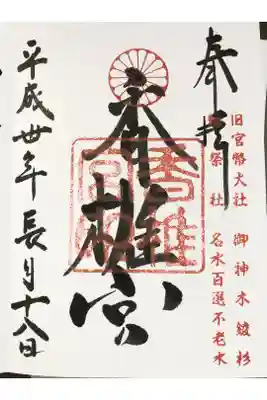 奉拝
旧官幣大社 御神木綾杉
勅祭社 名水百選不老水
香椎宮
香椎
平成卅年長月十八日